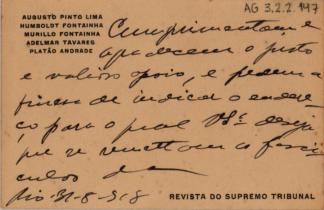 AG 3.2.2.147
AUGUSTO PINTO LIMA
HUMBOLDT FONTAINHA
MURILLO FONTAINHA
ADELMAR TAVARES
PLATÃO ANDRADE
Cumprimentam e
agradecem o justo
e valioso apoio, e pedem a
fineza de indicar o ende-
ço para o qual V. S. deseja
que se remettam os fasci-
culos da
REVISTA DO SUPREMO TRIBUNAL
Rio